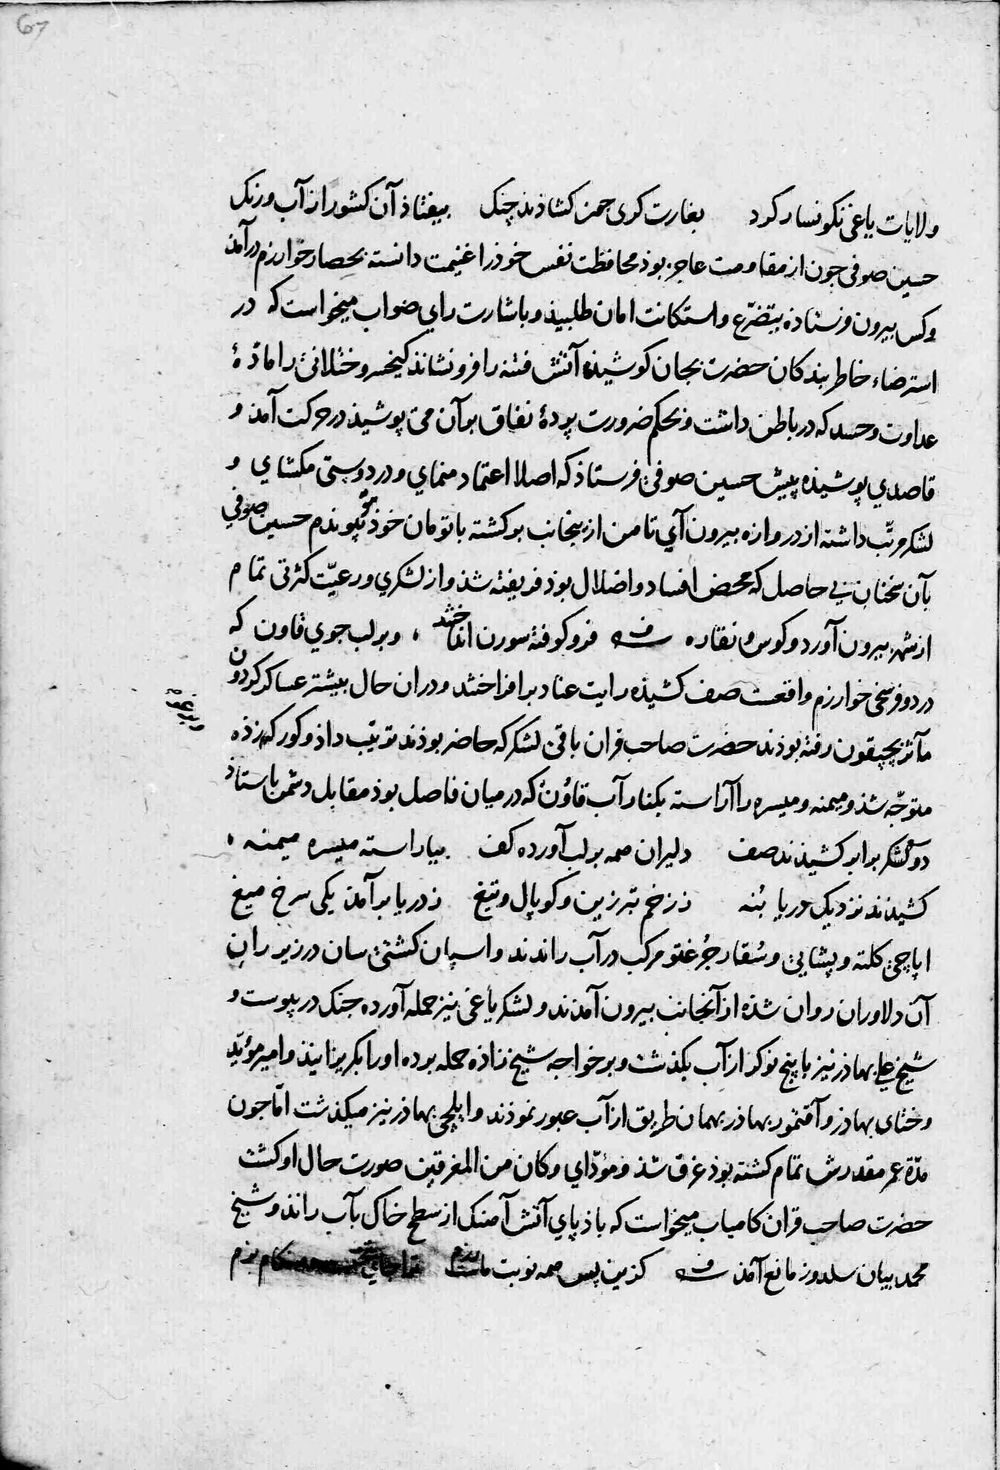 67
ولایات یاغی نکونسار کرد بغارت کری حمن کشاذند چنک بیفتاذ آن کشور از آب و رنک
حسین صوفی جون از مقاومت عاجز بوذ محافظت نفس خوذ را غنیمت دانسته بحصار خوارزم درآمذ
و کس بیرون فرستاذه بتضرّع و استکانت امان طلبیذ و باشارت رای صواب میخواست که در
استرضاء خاطر بندکان حضرت بجان کوشیذه آتش فتنه را فرو نشاند کیخسرو ختلانی را مادّهٔ
عداوت و حسد که در باطن داشت و بحکم ضرورت پردهٔ نفاق بر آن می پوشیذ در حرکت آمذ و
قاصدی پوشیذه پیش حسین صوفی فرستاذ که اصلا اعتماد منمای و در دوستی مکشای و
لشکر مرتّب داشته از دروازه بیرون آی تا من ازینجانب برکشته با تومان خوذ بتو پیوندم حسین صوفی
بآن سخنان بی حاصل که محض افساد و اضلال بوذ فریفته شذ و از لشکری و رعیّت کثرتی تمام
از شهر بیرون آورد و کوس و نقاره فرو کوفته سورن انداختند و بر لب جوی قاون که
در دو فرسخی خوارزم واقعست صف کشیذه رایت عناد برافراختند و دران حال بیشتر عساکر کردون
مآثر بچپقون رفته بوذند حضرت صاحب قران باقی لشکر که حاضر بوذند ترتیب داذ و کورکه زذه
متوجّه شذ و میمنه و میسره را آراسته بکنار آب قاون که در میان فاصل بوذ مقابل دشمن باستاذ
دو لشکر برابر کشیذند صف دلیران همه بر لب آورده کف بیاراسته میسره میمنه
کشیذند نزدیک دریا بنه ز زخم تبرزین و کوپال و تیغ ز دریا برآمذ یکی سرخ میغ
اپاچی کلته و پشایی و سُقار جُرغتو مرکب در آب راندند و اسپان کشتی سان در زیر ران
آن دلاوران روان شذه از آنجانب بیرون آمدند و لشکر یاغی نیز حمله آورده جنک در پیوست و
شیخ علی بهاذر نیز با پنج نوکر از آب بکذشت و بر خواجه شیخ زاذه حمله برده او را بکریزانیذ و امیر مؤیّد
و ختای بهاذر و آقتمور بهاذر بهمان طریق از آب عبور نموذند و ایلچی بهاذر نیز میکذشت امّا جون
مدّة عمر مقدرش تمام کشته بوذ غرق شذ و مؤدّای و کان من المغرقین صورت حال او کشت
حضرت صاحب قران کامیاب میخواست که باذ پای آتش آهنک از سطح خاک بآب راند و شیخ
محمد بیان سلدوز مانع آمذ کزین پس همه نوبت ماست رزم هنکام بزم